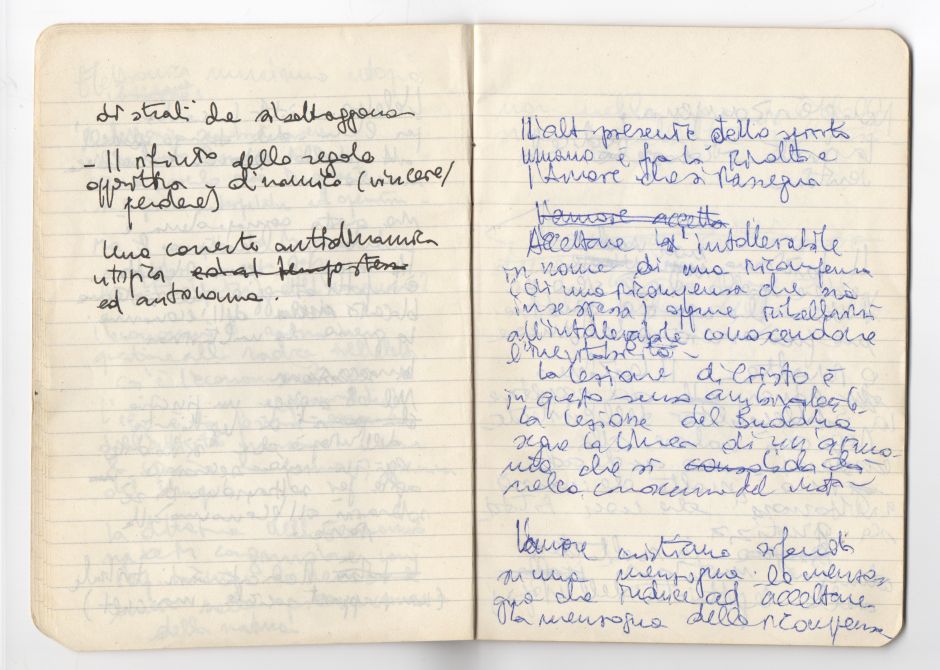 di strali da
- Il rifiuto della regola
oppositiva - dinamica (vincere/
perdere)
Una carretta antidinamica
utopica
ed autonoma.
presente dello spirito
umano è fra la Rivolta e
l'Amore che si Rassegna
L'amore accetta
Accettare l'intollerabile
in nome di una ricompensa
(di una ricompensa che sia
in se stessa) oppure ribellarsi
all'intollerabile conoscendone
l'inevitabilità -
La lezione di Cristo è
in questo senso ambivalente.
La lezione del Buddha
segue la linea di un'armo-
nia che si consolida
nella conoscenza del
L'amore cristiano si fonda
su una menzogna. la menzo-
gna che induce ad accettare
la menzogna della ricompensa